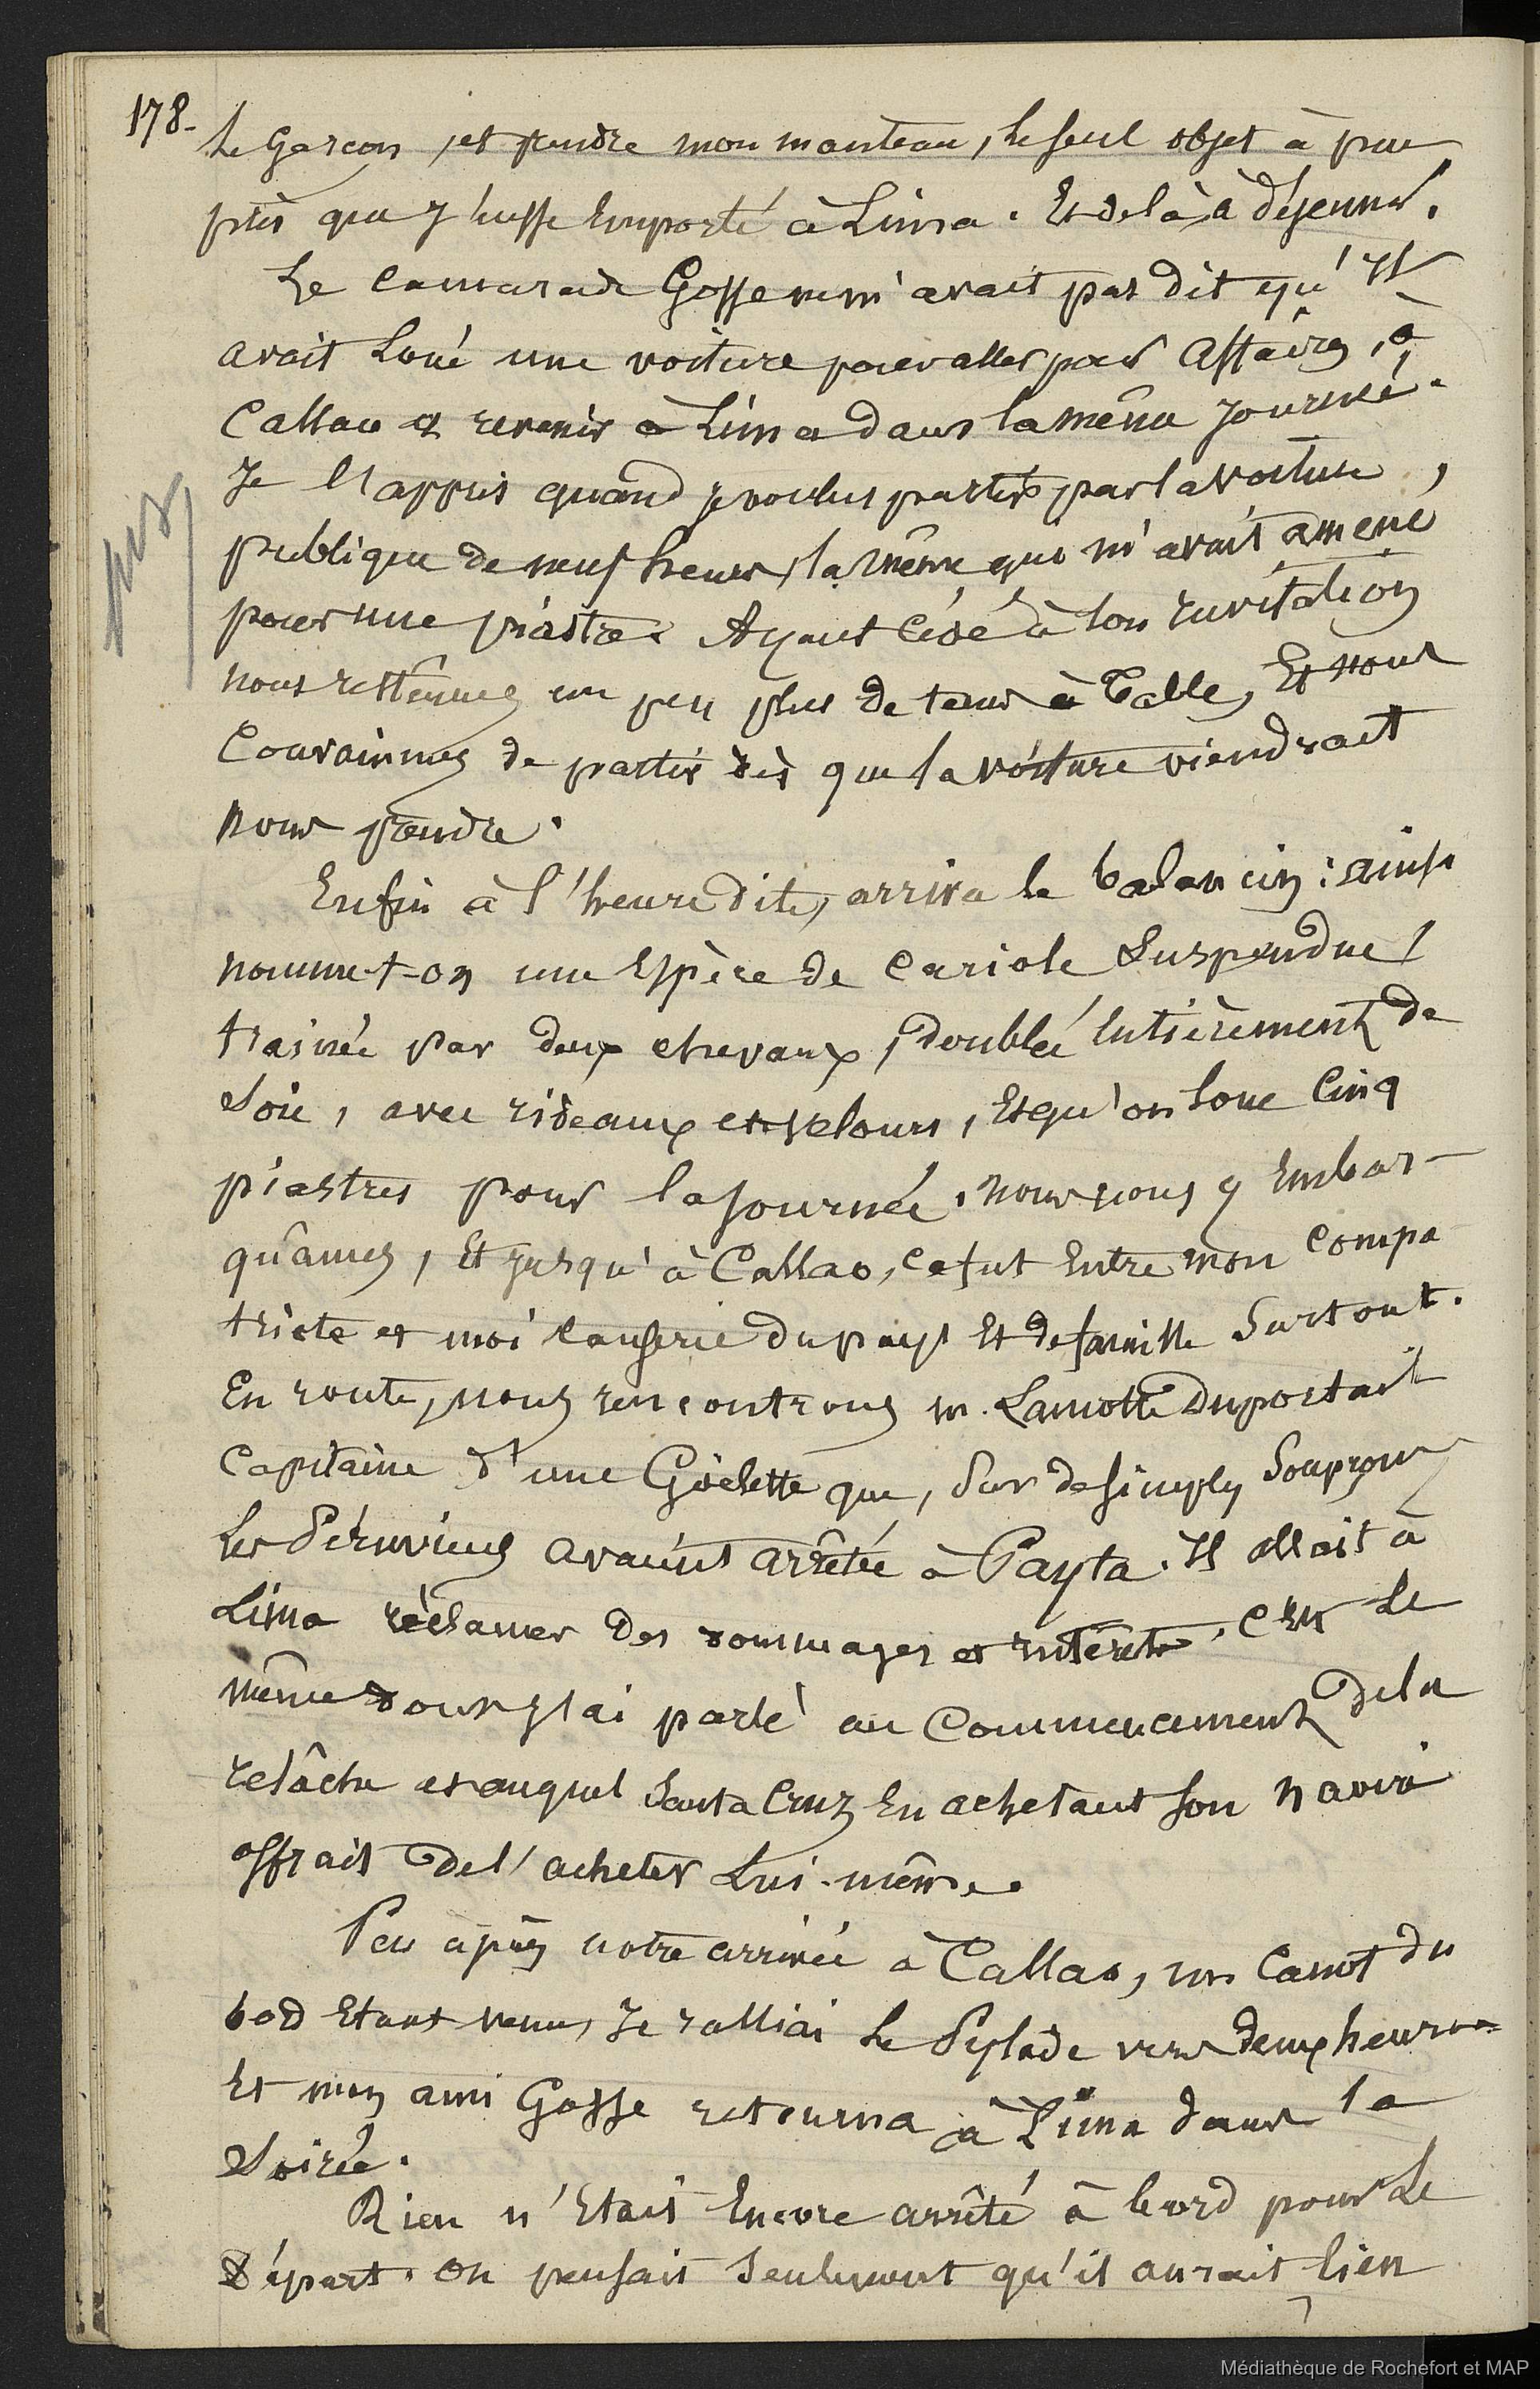 178.
Le Garcon, et prendre mon manteau, le seul objet à peu
près que j'eusse Emporté à Lima. Et de là à déjeuner.
Le camarade Gosse ne m'avait pas dit qu'il
avait Loué une voiture pour aller pour affaires, à
Callao et revenir à Lima dans la même journée.
Je l'appris quand je voulus partir par la voiture,
publique de neuf heures, la même qui m'avait amené
pour une piastre. Ayant Cédé à son invitation
nous restâmes un peu plus de tems à Table, Et nous
Convinmes de partir dès que la voiture viendrait
nous prendre.
Enfin à l'heure dite, arriva le balancin : ainsi
nomme-t-on une Espèce de Cariole Suspendue
trainée par deux chevaux, doublée Entièrement de
Soie, avec rideaux et velours, Et qu'on Loue Cinq
piastres pour la journée. nous nous y Embar-
quâmes, Et jusqu'à Callao, ce fut Entre mon compa
triote et moi causerie du pays Et de famille Surtout.
En route, nous rencontrons m. Lamotte Duportail
Capitaine d'une Goëlette que, Sur de simples Soupçons
Les Péruviens avaient arrêtée à Payta. Il allait à
Lima réclamer des dommages et intérêts. C'est Le
même dont j'ai parlé au Commencement de la
relâche et auquel Santa Cruz En achetant son navire
offrait de l'acheter Lui-même.
Peu après notre arrivée à Callao, un Canot du
bord Etant venu, Je ralliai Le Pylade vers deux heures
Et mon ami Gosse retourna à Lima dans la
Soirée.
Rien n'Etait Encore arrêté à bord pour Le
Départ. On pensait Seulement qu'il aurait lieu
Médiathèque de Rochefort et MAP